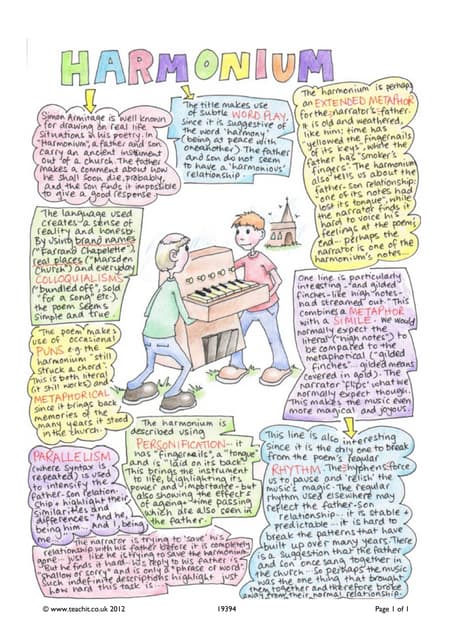 HARMONIUM
Simon Armitage is well known
for drawing on real life
situations in his poetry. In
"Harmonium", a father and son
carry an ancient instrument
out of a church. The father
makes a comment about how
he shall soon die, probably,
and the son finds it impossible
to give a good response.
The title makes use
of subtle WORD PLAY,
since it is suggestive of
the word 'harmony'
(being at peace with
one another). The father
and son do not seem
to have a 'harmonious'
relationship...
The harmonium is perhaps
an EXTENDED METAPHOR
for the narrator's father.
It is old and weathered,
like him; time has
yellowed the fingernails
of its keys", while the
father has "smoker's
fingers". The harmonium
also tells us about the
father-son relationship:
"one of its notes had
lost its tongue", while
the narrator finds it
hard to voice his
feelings at the poem's
end - perhaps the
narrator is one of the
harmonium's notes...
The language used
creates a sense of
reality and honesty.
By using brand names
("Farrand Chapelette"),
real places ("Marsden
Church") and everyday
COLLOQUIALISMS
("bundled off", sold
"for a song" etc.),
the poem seems
simple and true.
One line is particularly
interesting - "and gilded
finches - like high notes -
had streamed out". This
combines a METAPHOR
with a SIMILE. We would
normally expect the
literal ("high notes") to
be compared to the
metaphorical ("gilded
finches"... gilded means
covered in gold). The
narrator 'flips' what we
normally expect though.
This makes the music even
more magical and joyous.
The poem makes
use of occasional
PUNS e.g. the
harmonium "still
struck a chord".
This is both literal
(it still works) and
METAPHORICAL
since it brings back
memories of the
many years it stood
in the church.
The harmonium is
described using
PERSONIFICATION - it
has "fingernails", a "tongue"
and is "laid on its back".
This brings the instrument
to life, highlighting its
power and importance - but
also showing the effects
of ageing - time passing
which are also seen in
the father.
This line is also interesting
since it is the only one to break
from the poem's regular
RHYTHM. The hyphens force
us to pause and 'relish' the
music's magic. The regular
rhythm used elsewhere may
reflect the father-son
relationship... it is stable +
predictable... it is hard to
break the patterns that have
built up over many years. There
is a suggestion that the father
and son once sang together in
the church - so perhaps the music
was the one thing that brought
them together and therefore broke
away from their normal relationship.
PARALLELISM
(where syntax is
repeated) is used
to intensify the
father-son relation-
ship + highlight their
similarities and
differences - "And he,
being him... And I, being
me..."
The narrator is trying to 'save' his
relationship with his father before it is completely
gone - just like he is trying to save the harmonium.
But he finds it hard - his reply to his father is
"shallow or sorry" and is only a "phrase or word".
Such indefinite descriptions highlight just
how hard this task is.
© www.teachit.co.uk 2012
19394
Page 1 of 1